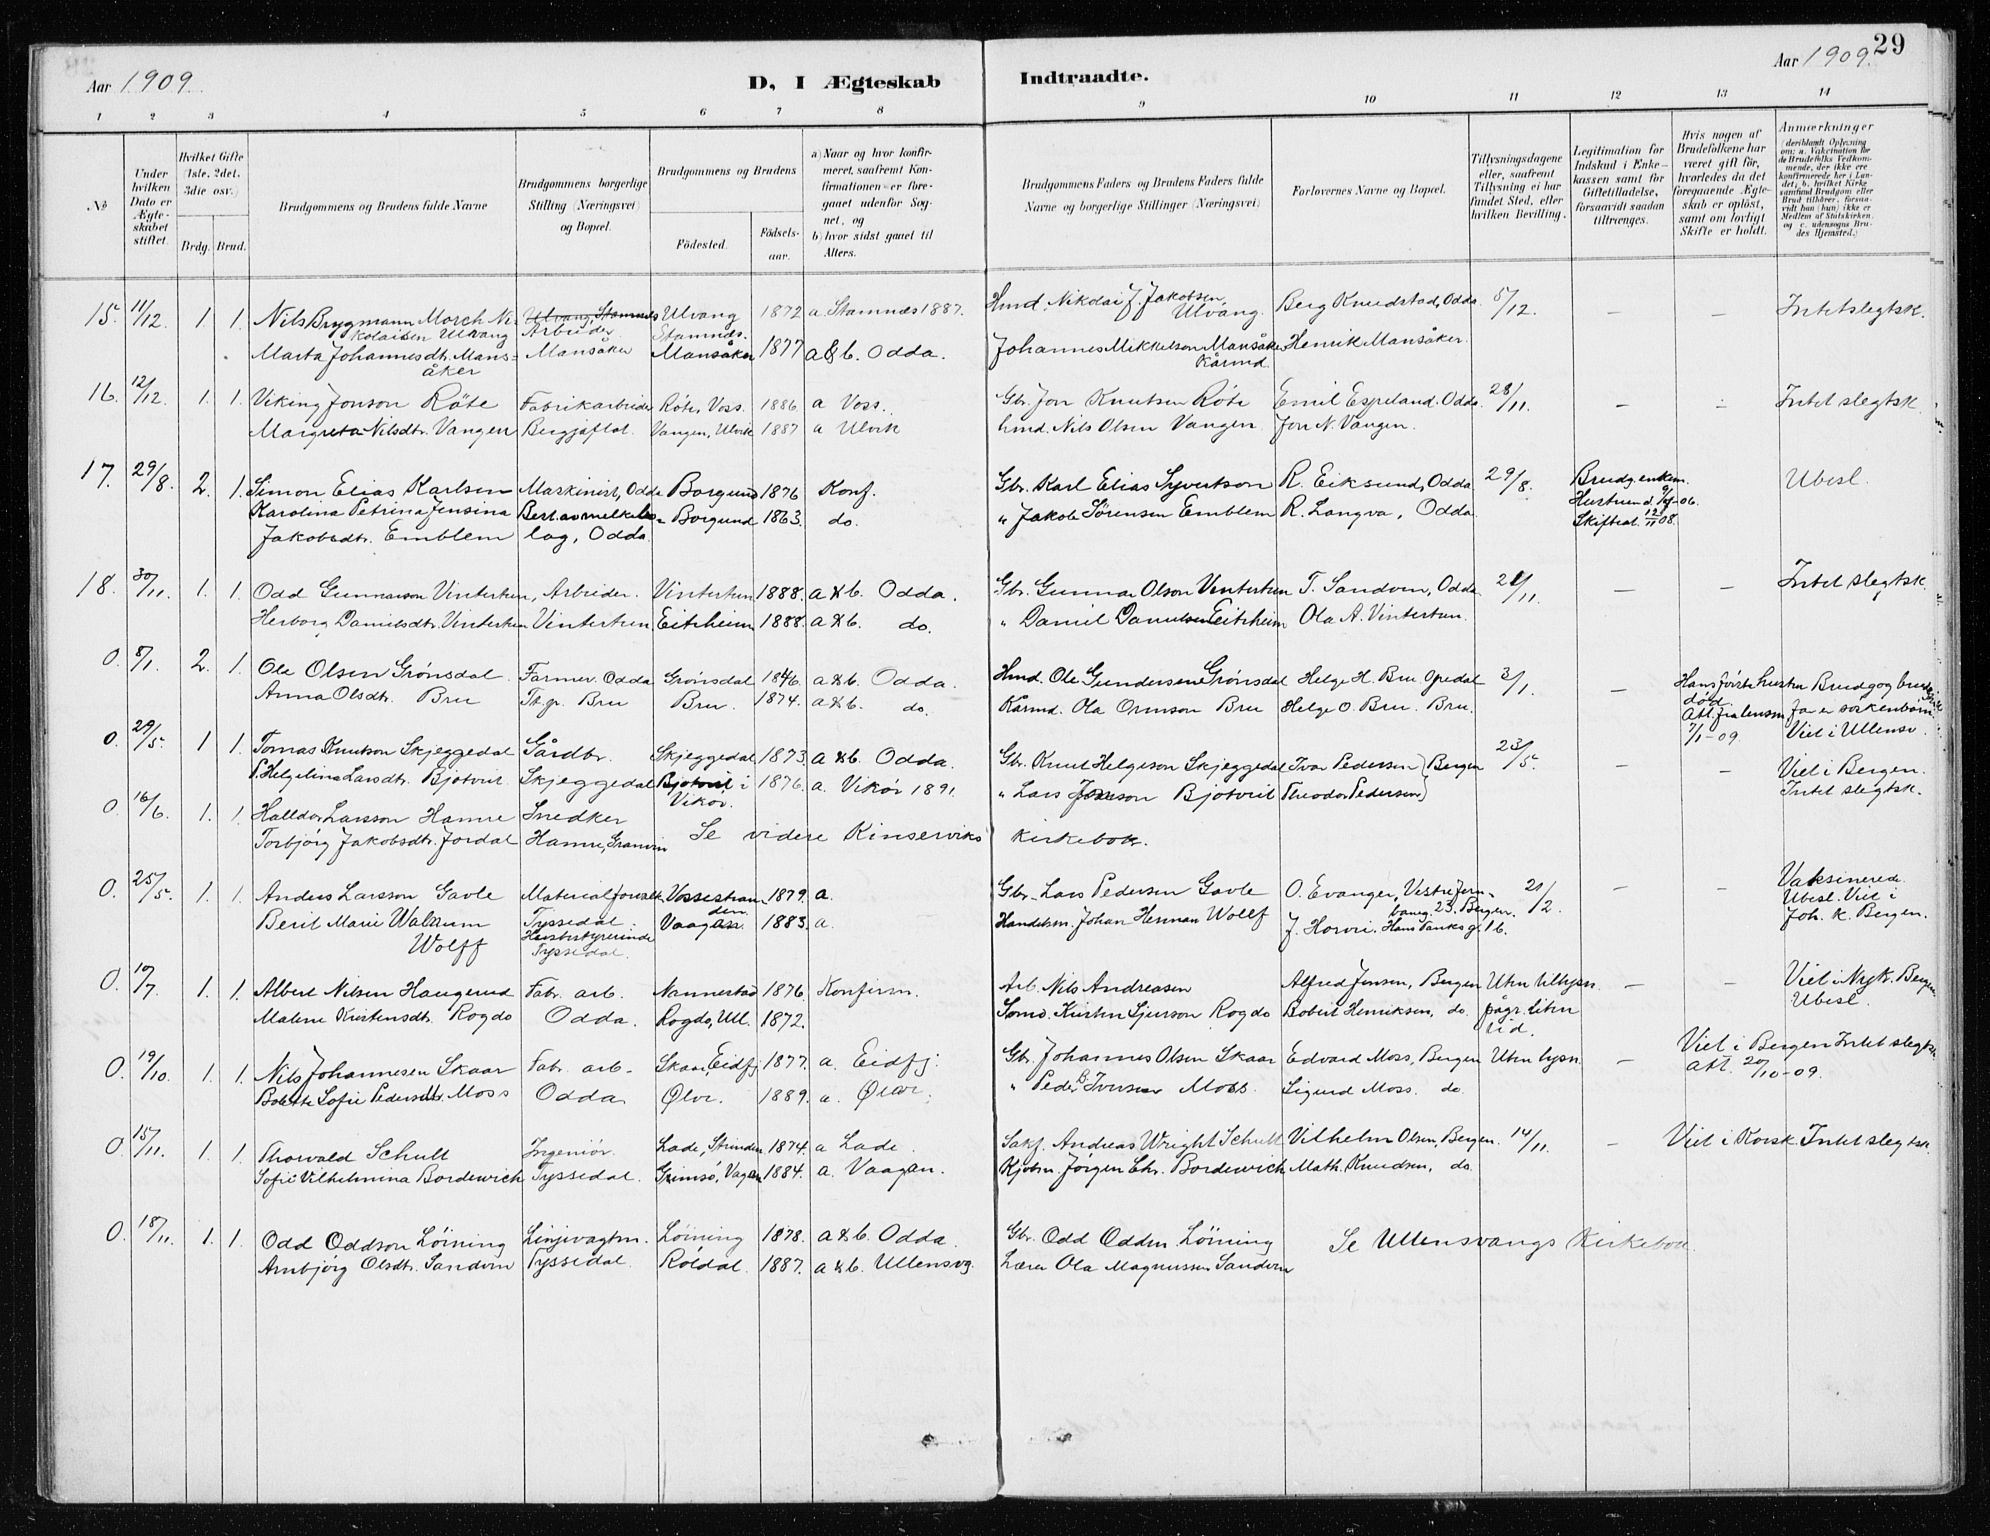 29
Aar 1909.
D, I Ægteskab
Indtraadte.
Aar 1909.
1 2 3 4 5 6 7 8 9 10 11 12 13 14
No
Under hvilken Dato er Ægteskabet stiftet.
Hvilket Gifte (1ste, 2det, 3die osv.)
Brdg. Brud.
Brudgommens og Brudens fulde Navne
Brudgommens borgerlige Stilling (Næringsvei) og Bopæl.
Brudgommens og Brudens
Fødested. Fødselsaar.
a) Naar og hvor konfirmeret, saafremt Konfirmationen er foregaaet udenfor Sognet, og
b) hvor sidst gaaet til Alters.
Brudgommens Faders og Brudens Faders fulde Navne og borgerlige Stillinger (Næringsvei)
Forlovernes Navne og Bopæl.
Tillysningsdagene eller, saafremt Tillysning ei har fundet Sted, efter hvilken Bevilling.
Legitimation for Indskud i Enkekassen samt for Giftetilladelse, forsaavidt saadan tiltrænges.
Hvis nogen af Brudefolkene har været gift før, hvorledes da det foregaaende Ægteskab er opløst, samt om lovligt Skifte er holdt.
Anmærkninger (deriblandt Oplysning om: a. Vakcination for de Brudefolks Vedkommende, der ikke ere konfirmerede her i Landet; b. hvilket Kirkesamfund Brudgom eller Brud tilhører, forsaavidt han (hun) ikke er Medlem af Statskirken, og c. udensogns Brudes Hjemsted.)
15. 11/12. 1 1. Nils Brygmann Morch Ni- Ulvang, Stamnes Ulvang 1872 a. Stamnes 1887. Hmd. Nikolai J. Jakobsen Berg Knudstad, Odda 5/12. — — Intet slegtsk.
kolaisen Ulvang Arbeider Stamnes. Ulvang.
Marta Johannesdt. Mans- Mansåker Mansåker 1877 a & b. Odda. Johannes Mikkelson Mansåker Henrik Mansåker.
åker Kårmd.
16. 12/12. 1. 1. Viking Jonson Röte Fabrikarbeider Röte, Voss. 1886. a Voss. Gbr. Jon Knutsen Röte Emil Espeland. Odda 28/11. — — Intet slegtsk.
Margreta Nilsdtr. Vangen Bergjaflot Vangen, Ulvik 1887 a Ulvik hmd. Nils Olsen Vangen Jon N. Vangen.
17. 29/8. 2. 1. Simon Elias Karlsen Maskinist, Odda Borgund 1876 Konf. Gbr. Karl Elias Syvertson R. Eiksund, Odda 29/8. Brudg. enkem. Ubesl.
Karolina Petrina Jensina Borgund 1863. do. " Jakob Sörensen Emblem R. Langva, Odda Hustrun d. -06.
Jakobsdtr. Emblem lag, Odda. Skifteat. 12/11 08.
18. 30/11. 1. 1. Odd Gunnarson Vintertun, Arbeider. Vintertun 1888. a & b. Odda. Gbr. Gunnar Olson Vintertun T. Sandven, Odda 21/11. — — Intet slegtsk.
Herborg Danielsdtr. Vintertun Vintertun Eitrheim 1888. a & b. do. " Daniel Danielsen Eitrheim Ola A. Vintertun.
0. 8/1. 2. 1. Ola Olsen Grönsdal Farmer Odda Grönsdal 1846. a & b. Odda. Hmd. Ole Gundersen Grönsdal Helge H. Bru Opedal 3/1. — Hans förste hustru Brudg og brud
Anna Olsdt. Bru Tt. p. Bru Bru. 1874. a & b. do. Kårmd. Ola Ormson Bru Helge O. Bru. Bru. död. er sökenbörn.
Att. fra lensm 7/1-09. Viet i Ullensv.
0. 29/5. 1 1. Tomas Knutson Skjeggedal Gårdbr. Skjeggedal 1873. a & b. Odda. Gbr. Knut Helgeson Skjeggedal Ivar Pedersen Bergen 23/5. — — Viet i Bergen.
P. Helgelina Larsdtr. Bjotveit Skjeggedal Bjotveit i 1876. a. Vikör 1891. " Lars Bjotveit Theodor Pedersen Intet slegtsk.
Vikör.
0. 16/6. 1. 1. Halldor Larsson Hamre Snedker
Torbjörg Jakobsdtr. Jordal Hamre, Granvin Se videre Kinserviks kirkebok.
0. 25/5. 1. 1. Anders Larsson Gavle Materialforvalt. Vossestran- 1879. a. Gbr. Lars Pedersen Gavle O. Evanger, Vestre Jern- 21/2. — — Vaksinered.
den bang. 23. Bergen. Ubesl. Viet i
Berit Marie Walnum Tyssedal. Vaagan. 1883. a. Handelsm. Johan Herman Wolff J. Horvei. Hans Tanks g. 16. Joh. k. Bergen.
Wolff Husbestyrerinde Tyssedal.
0. 10/7. 1. 1. Albert Nilsen Haugerud Fabr. arb. Nannestad 1876. Konfirm. Arb. Nils Andreasen Alfred Jensen, Bergen Uten tillysn. — — Viet i Nyk. Bergen.
Malene Kristensdt. Rogdo Odda. Rogdo, Ull. 1872. Kristen Sjurson Rogdo Robert Henriksen, do. pågr. liten Ubesl.
tid.
0. 19/10. 1. 1. Nils Johannesen Skaar Fabr. arb. Skaar, Eidfj. 1877. a. Eidfj. Gbr. Johannes Olsen Skaar Edvard Moss, Bergen Uten lysn. — Viet i Bergen Intet slegtsk.
Bolette Sofie Pedersdt. Moss Odda Ølve. 1889. a. Ølve. " Peder B. Iversen Moss. Sigurd Moss. do. Att. 20/10-09.
0. 15/11. 1. 1. Thorvald Schult Ingeniör. Lade, Strinden 1874. a Lade. Sakf. Andreas Wright Schult Vilhelm Olsen, Bergen. 14/11. — Viet i Korsk. Intet slegtsk.
Sofie Vilhelmina Bordewich Tyssedal. Grimsö, Vagan 1884. a. Vaagan. Kjöbm. Jörgen Chr. Bordewich Math. Knudsen, do.
0. 18/11. 1. 1. Odd Oddson Löining Linjevagtm. Löining 1878. a & b. Odda. Gbr. Odd Odden Löining Se Ullensvangs Kirkebok.
Arnbjörg Olsdt. Sandven Tyssedal. Röldal. 1887. a & b. Ullensvg. Lærer Ola Magnussen Sandven